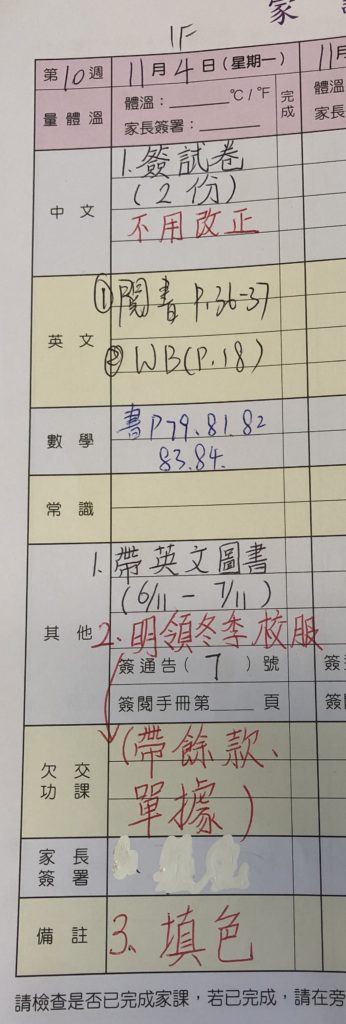 家
1F
第10週 11月4日(星期一) 11月
量體溫 體溫:______℃/℉ 完成 體溫
家長簽署:______ 家長
中文 1. 簽試卷
(2份)
不用改正
英文 ①閱書 P.36-37
② WB(P.18)
數學 書P79、81、82
83、84.
常識
其他 1. 帶英文圖書
(6/11 - 7/11)
2. 明領冬季校服
簽通告(7)號
簽閱手冊第____頁
欠交功課 (帶餘款、
單據)
家長簽署
備註 3、填色
請檢查是否已完成家課,若已完成,請在旁